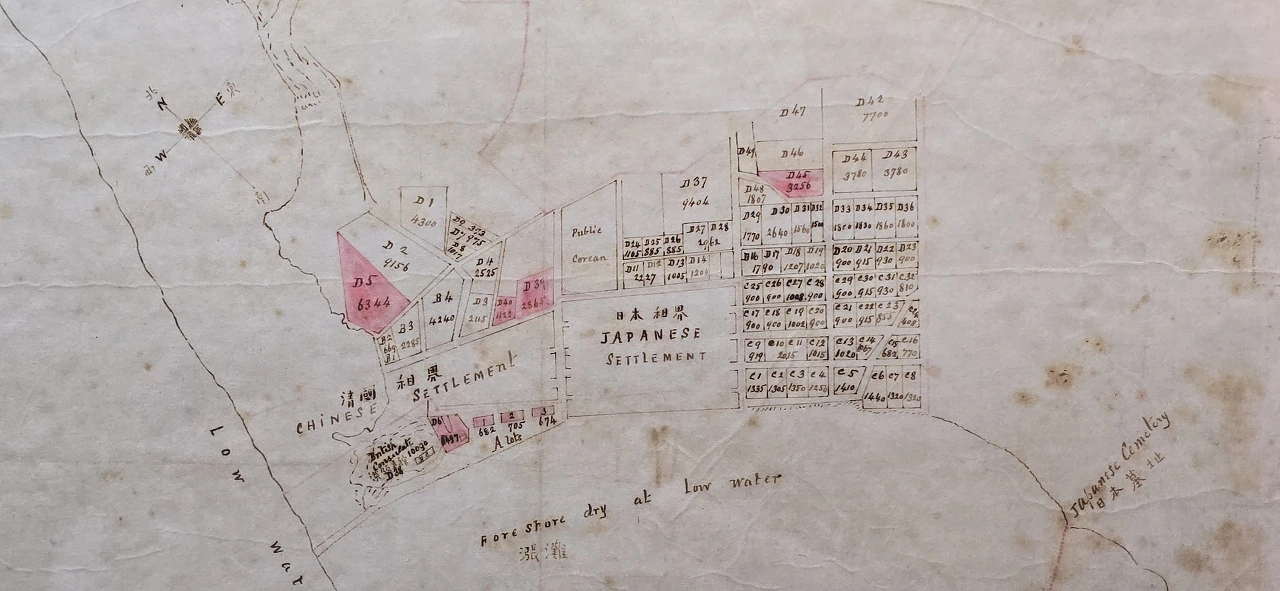 北
N
E 東
W
西
南
D47
D42
7700
D46
D44
3780
D43
3780
D45
3256
D48
1807
D37
9404
D1
4300
D2
9156
D5
6344
B4
4240
B3
2285
B2
B1
D3
2115
D4
2525
D40
D39
Public
Corean
D24
1105
D25
885
D26
885
D27
D28
D11
D12
D13
1005
D14
D29
1770
D30
2640
D31
D32
D33
D34
D35
D36
1800
D16
D17
1790
D18
1207
D19
1020
D20
900
D21
915
D22
930
D23
900
C25
900
C26
900
C27
1008
C28
900
C29
900
C30
915
C31
930
C32
810
C17
900
C18
900
C19
1002
C20
900
C21
900
C22
915
C23
C9
919
C10
C11
2015
C12
1015
C13
1020
C14
C15
682
C16
770
C1
1335
C2
1305
C3
1350
C4
1250
C5
1410
C6
1440
C7
1320
C8
1320
日本租界
JAPANESE
SETTLEMENT
清國 租界
CHINESE SETTLEMENT
D6
1
682
2
705
3
674
A lots
British
Consulate
10030
D38
Low Wat
Foreshore dry at Low water
漲灘
Japanese Cemetery
日本墓址